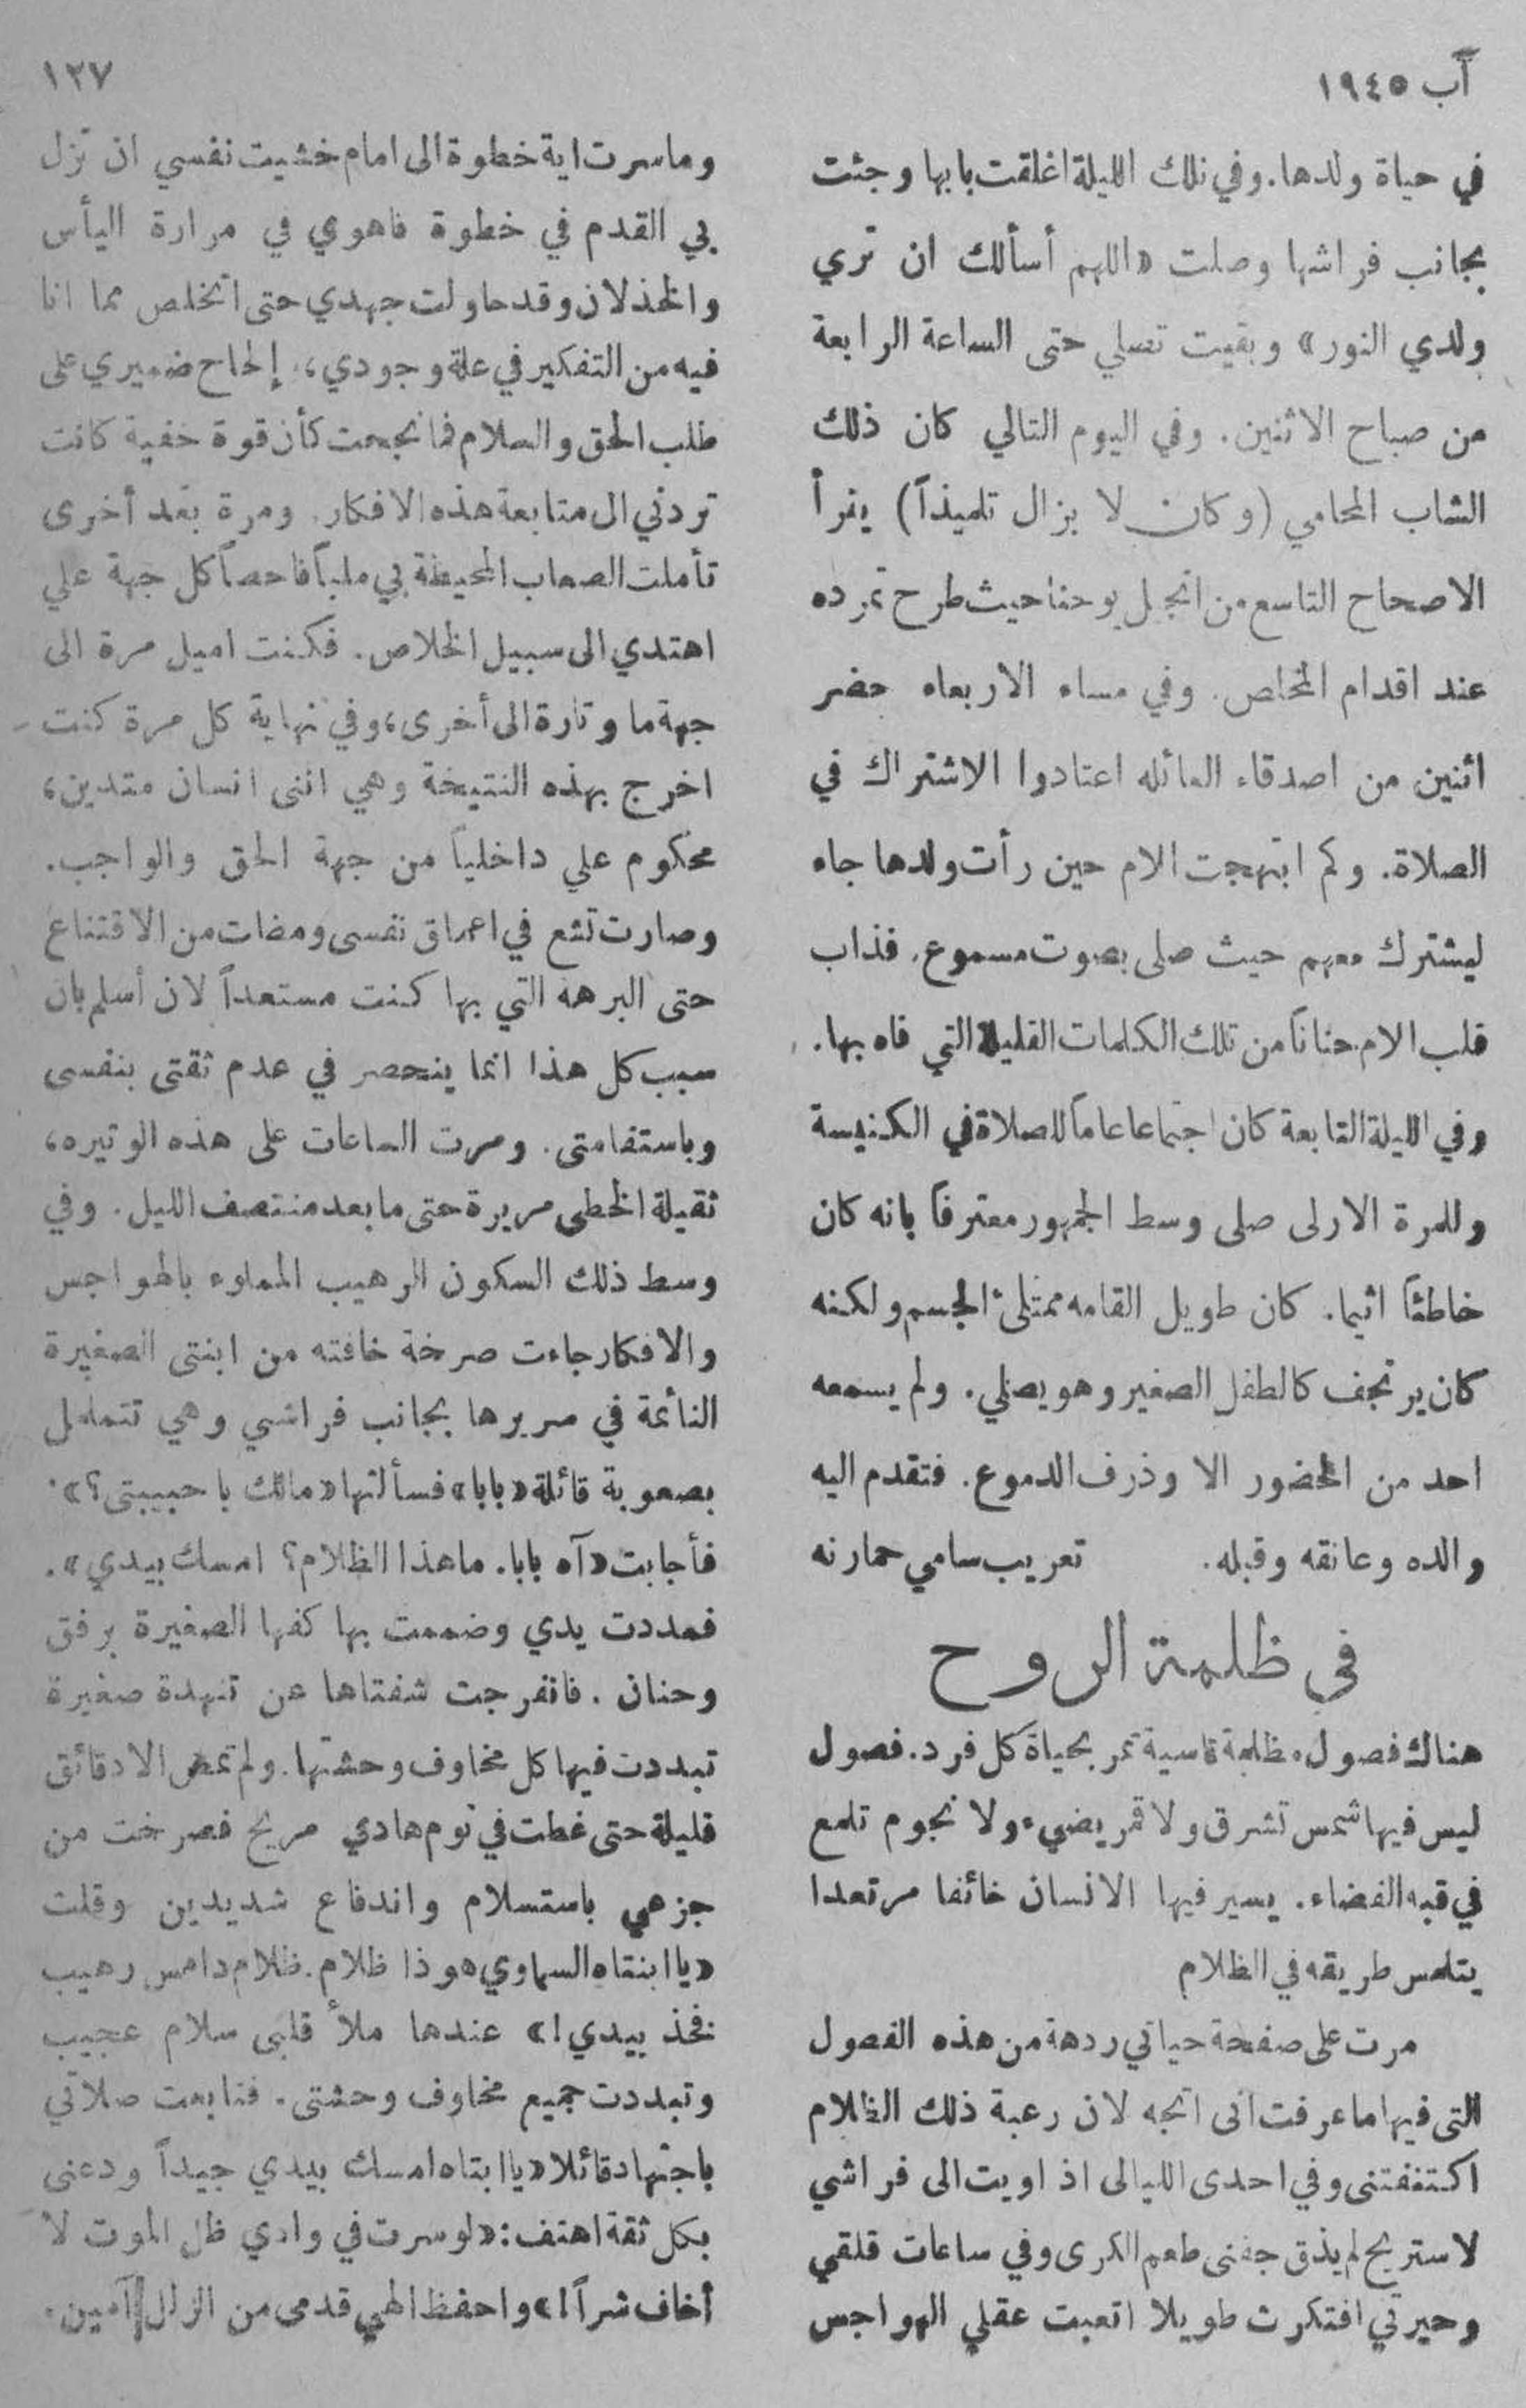 آب ١٩٤٥
١٢٧
في حياة ولدها. وفي تلك الليلة اغلقت بابها وجثت
بجانب فراشها وصلت «اللهم أسألك ان تري
ولدي النور» وبقيت تصلي حتى الساعة الرابعة
من صباح الاثنين. وفي اليوم التالي كان ذلك
الشاب المحامي (وكان لا يزال تلميذاً) يقرأ
الاصحاح التاسع من انجيل يوحنا حيث طرح تمرده
عند اقدام المخلص. وفي مساء الاربعاء حضر
اثنين من اصدقاء العائله اعتادوا الاشتراك في
الصلاة. وكم ابتهجت الام حين رأت ولدها جاء
ليشترك معهم حيث صلى بصوت مسموع. فذاب
قلب الام حناناً من تلك الكلمات القليلة التي فاه بها.
وفي الليلة التابعة كان اجتماعا عاماً للصلاة في الكنيسة
وللمرة الاولى صلى وسط الجمهور معترفاً بانه كان
خاطئاً اثيما. كان طويل القامه ممتلئ الجسم ولكنه
كان يرتجف كالطفل الصغير وهو يصلي. ولم يسمعه
احد من الحضور الا وذرف الدموع. فتقدم اليه
والده وعانقه وقبله. تعريب سامي حمارنه
في ظلمة الروح
هناك فصول مظلمة قاسية تمر بحياة كل فرد. فصول
ليس فيها شمس تشرق ولا قمر يضيء ولا نجوم تلمع
في قبه الفضاء. يسير فيها الانسان خائفا مرتعدا
يتلمس طريقه في الظلام
مرت على صفحة حياتي ردهة من هذه الفصول
التى فيها ما عرفت انى اتجه لان رعبة ذلك الظلام
اكتنفتنى وفي احدى الليالى اذ اويت الى فراشي
لاستريح لم يذق جفنى طعم الكرى وفي ساعات قلقي
وحيرتي افتكرت طويلا اتعبت عقلي الهواجس
وما سرت اية خطوة الى امام خشيت نفسي ان تزل
بي القدم في خطوة فاهوي في مرارة اليأس
والخذلان وقد حاولت جهدي حتى اتخلص مما انا
فيه من التفكير في علة وجودي، إلحاح ضميري على
طلب الحق والسلام فما نجحت كأن قوة خفية كانت
تردني الى متابعة هذه الافكار. ومرة بعد أخرى
تأملت الصعاب المحيطة بي ملياً فاحصاً كل جهة علي
اهتدي الى سبيل الخلاص. فكنت اميل مرة الى
جهة ما وتارة الى أخرى، وفي نهاية كل مرة كنت
اخرج بهذه النتيجة وهي اننى انسان متدين،
محكوم علي داخلياً من جهة الحق والواجب.
وصارت تشع في اعماق نفسى ومضات من الاقتناع
حتى البرهه التي بها كنت مستعداً لان أسلم بان
سبب كل هذا انما ينحصر في عدم ثقتى بنفسى
وباستقامتى. ومرت الساعات على هذه الوتيره،
ثقيلة الخطى مريرة حتى ما بعد منتصف الليل. وفي
وسط ذلك السكون الرهيب المملوء بالهواجس
والافكار جاءت صرخة خافته من ابنتى الصغيرة
النائمة في سريرها بجانب فراشي وهي تتململ
بصعوبة قائلة «بابا» فسألتها «مالك يا حبيبتى؟»
فأجابت «آه بابا. ما هذا الظلام؟ امسك بيدي».
فمددت يدي وضممت بها كفها الصغيرة برفق
وحنان. فانفرجت شفتاها عن تنهدة صغيرة
تبددت فيها كل مخاوف وحشتها. ولم تمض الا دقائق
قليلة حتى غطت في نوم هادي مريح فصرخت من
جزعي باستسلام واندفاع شديدين وقلت
«يا ابتاه السماوي هوذا ظلام. ظلام دامس رهيب
فخذ بيدي!» عندها ملأ قلبى سلام عجيب
وتبددت جميع مخاوف وحشتى. فتابعت صلاتي
باجتهاد قائلا «يا ابتاه امسك بيدي جيداً ودعنى
بكل ثقة اهتف: «لو سرت في وادي ظل الموت لا
أخاف شراً!» واحفظ الهي قدمى من الزلل آمين.